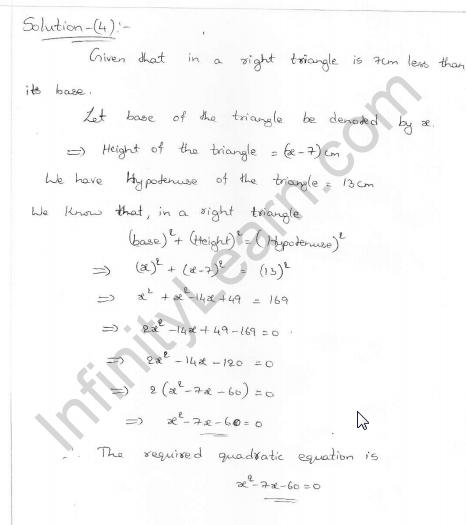 Solution-(4):-
Given that in a right triangle is 7cm less than
its base.
Let base of the triangle be denoted by x.
⇒ Height of the triangle = (x-7)cm
We have Hypotenuse of the triangle = 13cm
We know that, in a right triangle
(base)² + (Height)² = (Hypotenuse)²
⇒ (x)² + (x-7)² = (13)²
⇒ x² + x²-14x+49 = 169
⇒ 2x²-14x+49-169=0
⇒ 2x²-14x-120=0
⇒ 2(x²-7x-60)=0
⇒ x²-7x-60=0
∴ The required quadratic equation is
x²-7x-60=0
InfinityLearn.com